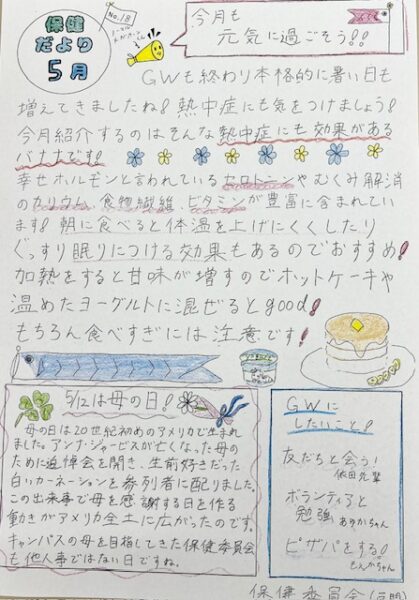 保健
だより
5月
No.18
今月も
元気に過ごそう!!
GWも終わり本格的に暑い日も
増えてきましたね!熱中症にも気をつけましょう!
今月紹介するのはそんな熱中症にも効果がある
バナナです!
幸せホルモンと言われているセロトニンやむくみ解消
のカリウム、食物繊維、ビタミンが豊富に含まれてい
ます!朝に食べると体温を上げにくくしたり
ぐっすり眠りにつける効果もあるのでおすすめ!
加熱をすると甘味が増すのでホットケーキや
温めたヨーグルトに混ぜるとgood!
もちろん食べすぎには注意です!
5/12は母の日!
母の日は20世紀初めのアメリカで生まれ
ました。アンナ・ジャービスが亡くなった母の
ために追悼会を開き、生前好きだった
白いカーネーションを参列者に配りました。
この出来事で母を感謝する日を作る
動きがアメリカ全土に広がったのです。
キャンパスの母を目指してきた保健委員会
も他人事ではない日ですね。
GWに
したいこと!
友だちと会う!
依田先輩
ボランティアと
勉強
あすかちゃん
ピザパをする!
もえかちゃん
保健委員会